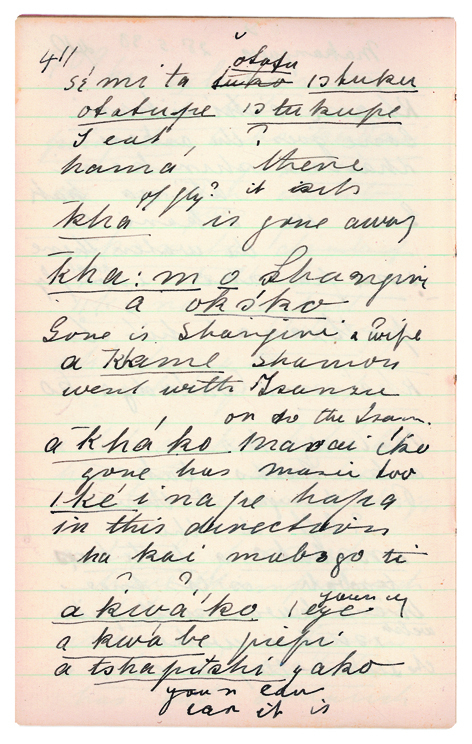 411
otatu
sé mi ta tuko ıstuku
otatupe ıstukupe
I eat ?
hamá there
of fly? it is
kha is gone away
kha: m o Shangiri
a okóko
Gone is Shangiri a wife
a Khame shamon
went with Isanzu
on to the Isan.
á khá ko Masai íko
gone has masai too
ıké i na pe hapa
in this direction
ha kai mabogo ti
? ?
a kwá ko ieye
a kwa be piepi
a tshapitshi yako
your ear
ear it is